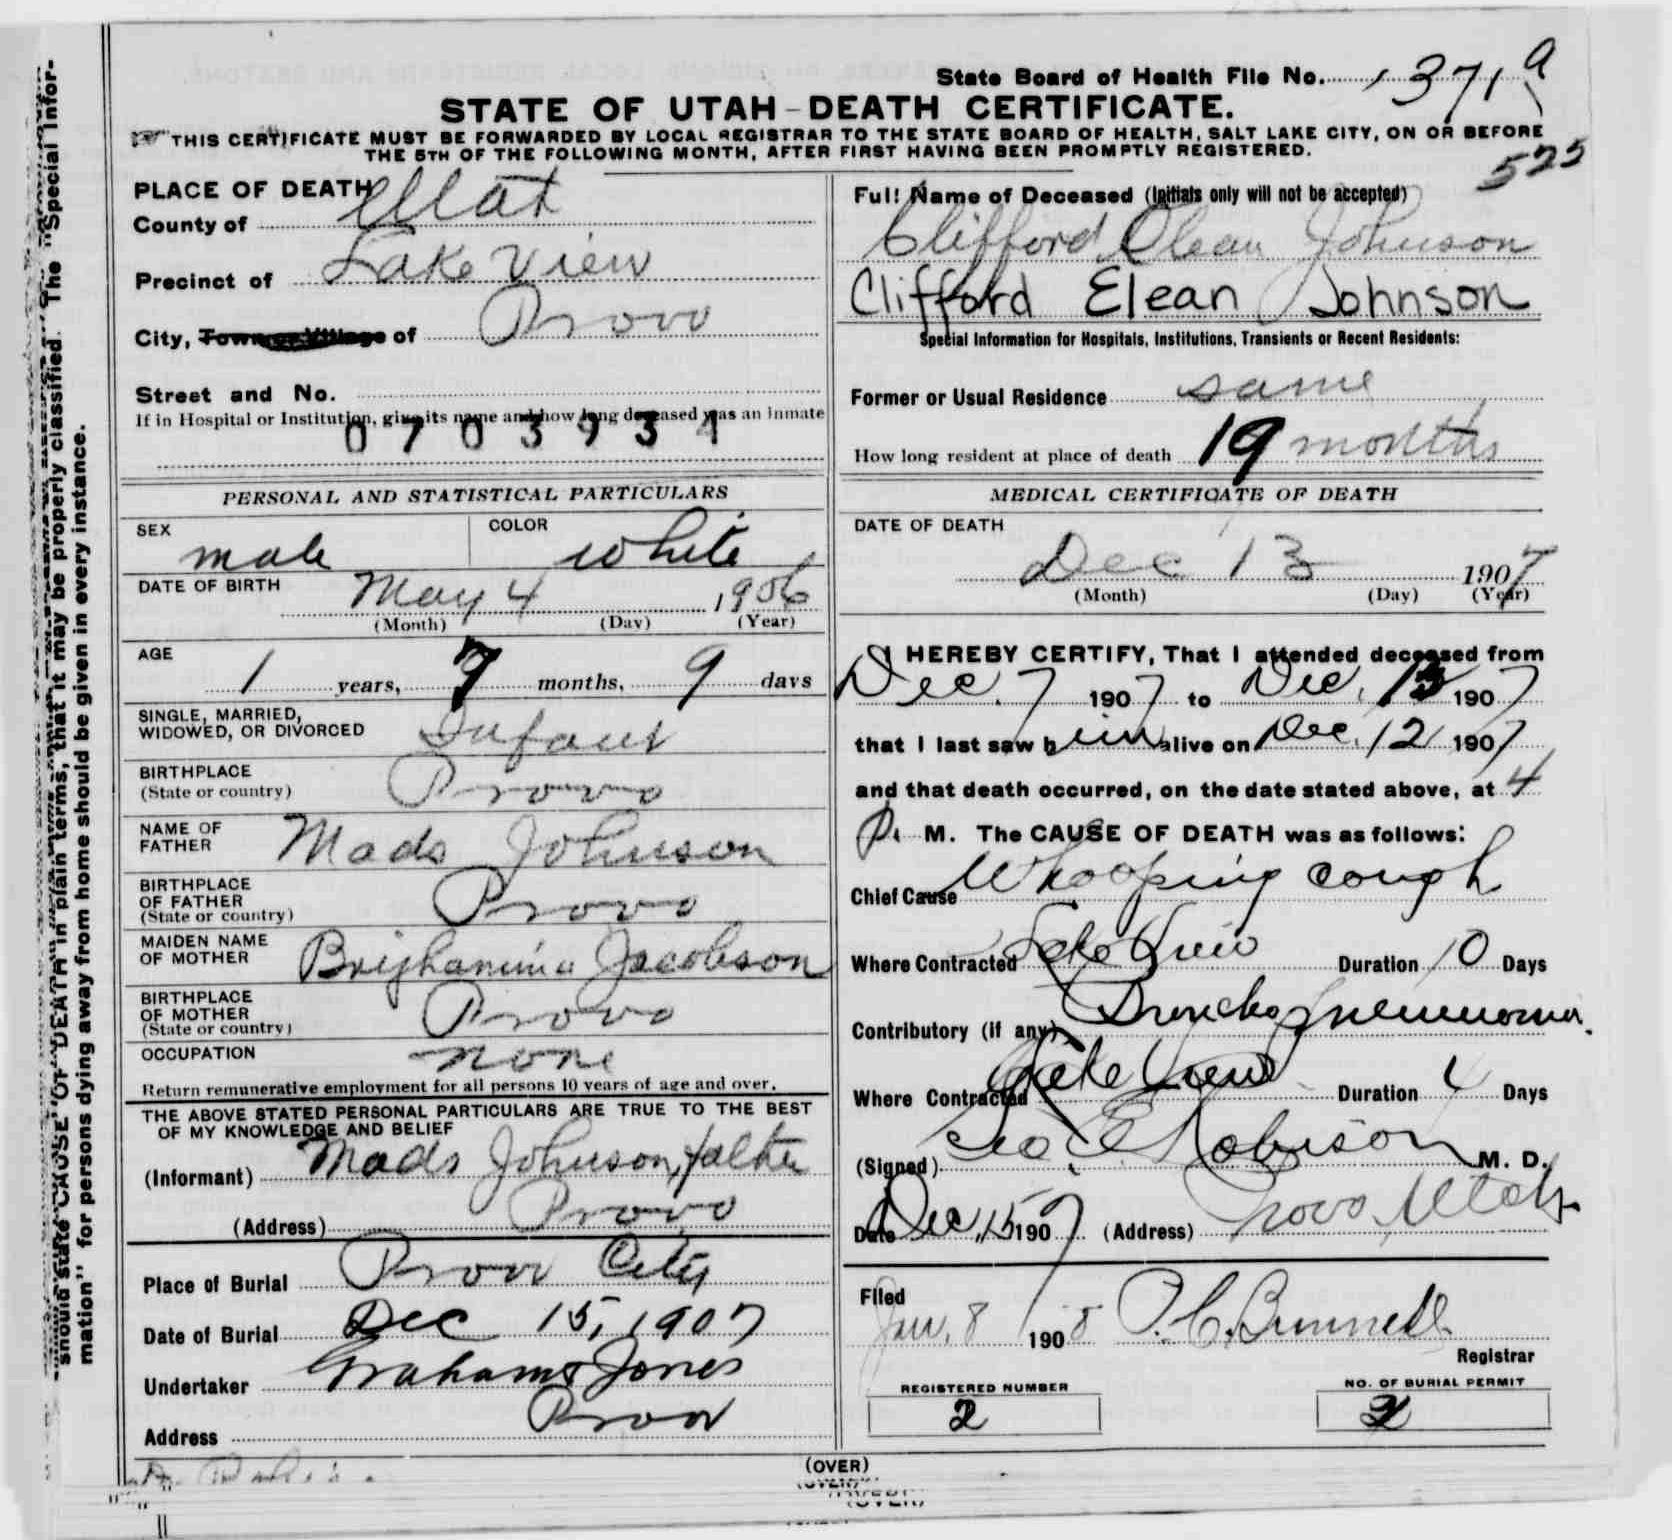 State Board of Health File No. 1371 a
STATE OF UTAH-DEATH CERTIFICATE.
THIS CERTIFICATE MUST BE FORWARDED BY LOCAL REGISTRAR TO THE STATE BOARD OF HEALTH, SALT LAKE CITY, ON OR BEFORE
THE 5TH OF THE FOLLOWING MONTH, AFTER FIRST HAVING BEEN PROMPTLY REGISTERED.
525
PLACE OF DEATH
County of Utah
Precinct of Lake View
City, Town or Village of Provo
Street and No.
If in Hospital or Institution, give its name and how long deceased was an inmate
0703934
PERSONAL AND STATISTICAL PARTICULARS
SEX male COLOR white
DATE OF BIRTH May 4 1906
(Month) (Day) (Year)
AGE 1 years, 7 months, 9 days
SINGLE, MARRIED,
WIDOWED, OR DIVORCED Infant
BIRTHPLACE
(State or country) Provo
NAME OF
FATHER Mads Johnson
BIRTHPLACE
OF FATHER
(State or country) Provo
MAIDEN NAME
OF MOTHER Brighamina Jacobson
BIRTHPLACE
OF MOTHER
(State or country) Provo
OCCUPATION none
Return remunerative employment for all persons 10 years of age and over.
THE ABOVE STATED PERSONAL PARTICULARS ARE TRUE TO THE BEST
OF MY KNOWLEDGE AND BELIEF
(Informant) Mads Johnson, father
(Address) Provo
Place of Burial Provo City
Date of Burial Dec 15, 1907
Undertaker Graham & Jones
Address Provo
Full Name of Deceased (Initials only will not be accepted)
Clifford Elean Johnson
Clifford Elean Johnson
Special Information for Hospitals, Institutions, Transients or Recent Residents:
Former or Usual Residence same
How long resident at place of death 19 months
MEDICAL CERTIFICATE OF DEATH
DATE OF DEATH
Dec 13 1907
(Month) (Day) (Year)
I HEREBY CERTIFY, That I attended deceased from
Dec. 7 1907 to Dec. 13 1907
that I last saw him alive on Dec. 12 1907
and that death occurred, on the date stated above, at 4
P. M. The CAUSE OF DEATH was as follows:
Chief Cause Whooping cough
Where Contracted Lake View Duration 10 Days
Contributory (if any) Broncho pneumonia.
Where Contracted Lake View Duration 4 Days
(Signed) Geo E Robison M. D.
Date Dec. 15 1907 (Address) Provo, Utah
Filed
Jan. 8 1908 P. C. Bunnell
Registrar
REGISTERED NUMBER
2
NO. OF BURIAL PERMIT
2
(OVER)
should state CAUSE OF DEATH in plain terms, that it may be properly classified. The "Special Infor-
mation" for persons dying away from home should be given in every instance.